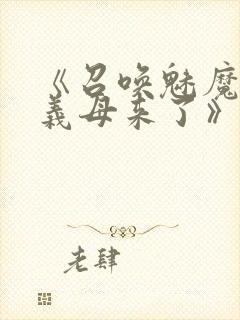 《召唤魅魔
義母来了》
老肆